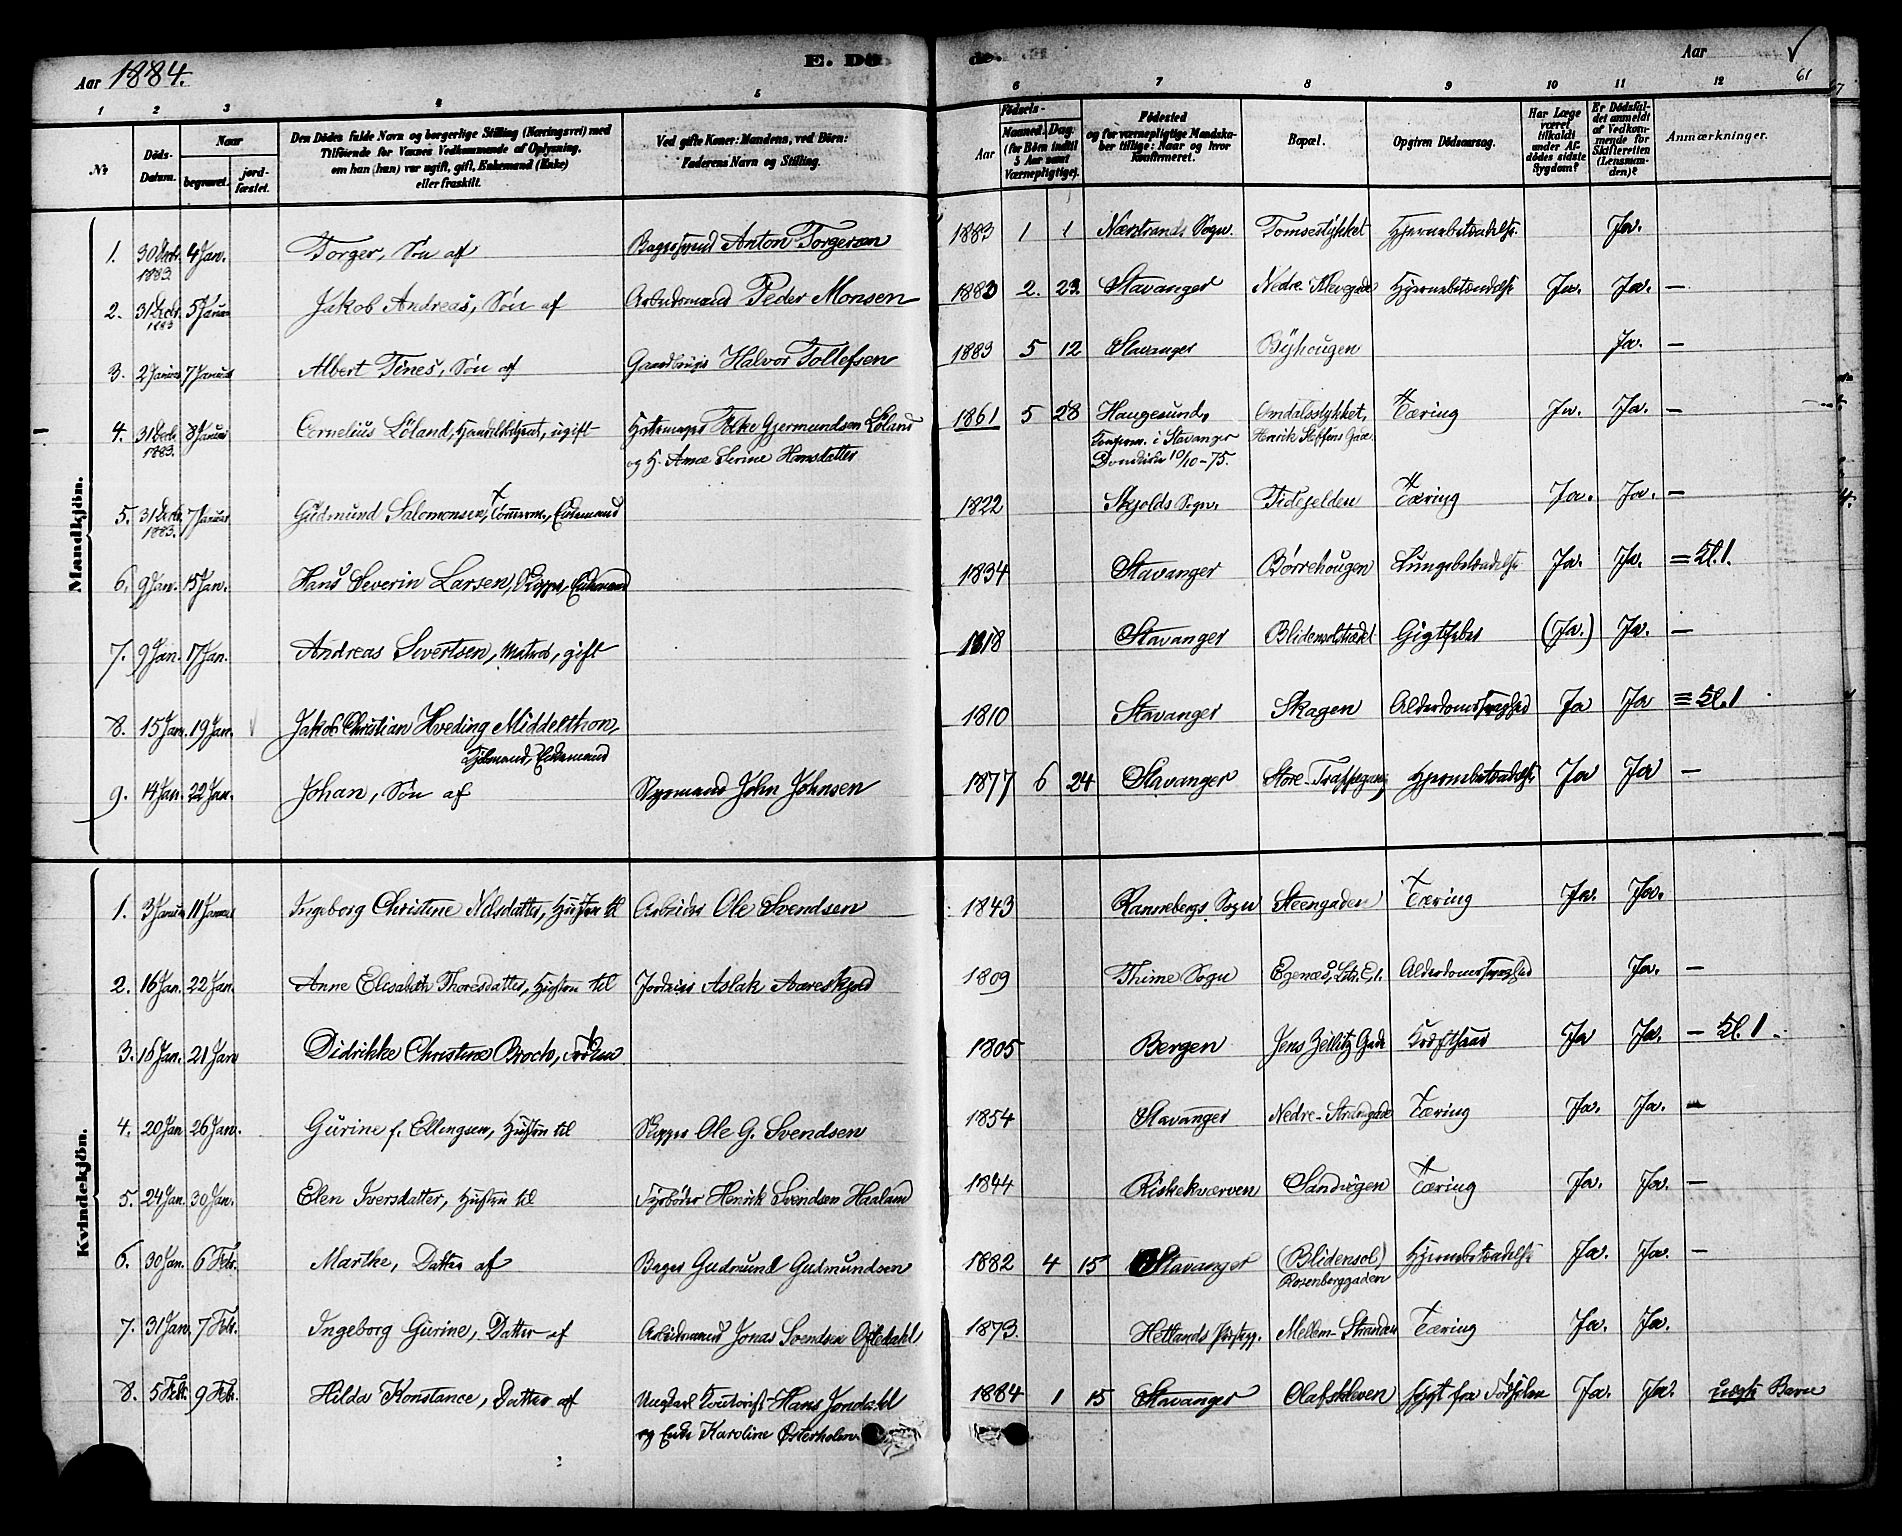 Aar 1884.
E. Dö
de.
Aar
61
1 2 3 4 5 6 7 8 9 10 11 12
No
Döds-Datum.
Naar
begravet.
jordfæstet.
Den Dödes fulde Navn og borgerlige Stilling (Næringsvei) med
Tilföiende for Voxnes Vedkommende af Oplysning,
om han (hun) var ugift, gift, Enkemand (Enke)
eller fraskilt.
Ved gifte Koner: Mandens, ved Börn:
Faderens Navn og Stilling.
Födsels-
Aar
Maaned. Dag.
(for Börn indtil
5 Aar samt
Værnepligtige).
Födested
og for værnepligtige Mandskaber tillige: Naar og hvor
konfirmeret.
Bopæl.
Opgiven Dödsaarsag.
Har Læge
været
tilkaldt
under Afdödes sidste
Sygdom?
Er Dödsfaldet anmeldt
af Vedkommende for
Skifteretten
(Lensmanden)?
Anmærkninger.
Mandkjön.
1. 30 Decbr. 1883. 4 Jan. Torger, Søn af Anton Torgersen 1883 1 1 Nærstrands Sogn. Tomsestykket Hjernebetændelse Ja.
2. 31 Decbr. 1883 5 Januar Jakob Andreas, Søn af Arbeidsmand Peder Monsen 1880 2. 23. Stavanger Nedre Hjernebetændelse Ja. Ja. —
3. 2 Januar 7 Januar Albert Tines, Søn af Halvor Tollefsen 1883 5 12 Stavanger Byhougen Ja. —
4. 31 Decb. 1883. 8 Januar Cornelius Løland, ugift Folke Gjermundsen Løland 1861 5 28 Haugesund, Omdalsstykket, Tæring Ja. Ja. —
og H. Anne Serine Hansdatter i Stavanger Henrik Steffens Gade
10/10-75.
5. 31 Decbr. 1883. 7 Januar Gudmund Salomonsen, Tømrerm., Enkemand 1822 Skjolds Sogn. Tidegelden Tæring Ja. Ja. —
6. 9 Jan. 15 Jan. Hans Severin Larsen, Enkemand 1834 Stavanger Børrehougen Lungebetændelse Ja. Ja. = Bl. 1.
7. 9 Jan. 17 Jan. Andreas Sivertsen, Matros, gift 1818 Stavanger Blidensolstrædet Gigtfeber (Ja.) Ja. —
8. 15 Jan. 19 Jan. Jakob Christian Hveding Middelthon, 1810 Stavanger Skagen Alderdomssvaghed Ja Ja = Bl. 1
Kjøbmand, Enkemand
9. 14 Jan. 22 Jan. Johan, Søn af Styrmand John Johnsen 1877 6 24 Stavanger Store-Trappegang Hjernebetændelse Ja Ja —
Kvindekjön.
1. 3 Januar 11 Januar Ingeborg Christine Nilsdatter, Hustru til Arbeider Ole Svendsen 1843 Rannebergs Sogn Steengaden Tæring Ja. Ja.
2. 16 Jan. 22 Jan. Anne Elisabeth Thoresdatter, Hustru til Aslak Aareskjold 1809 Thime Sogn Egenæs, Litr. E, 1. Alderdomssvaghed Ja. —
3. 18 Jan. 21 Jan Didrikke Christine Broch, 1805 Bergen Jens Zetlitz Gade Kræftsaar Ja Ja. — Bl. 1
4. 20 Jan 26 Jan. Gurine f. Ellingsen, Hustru til Skipper Ole G. Svendsen 1854 Stavanger Nedre-Strandgade Tæring Ja. Ja. —
5. 24 Jan. 30 Jan. Elen Iversdatter, Hustru til Fyrbøder Henrik Svendsen Haaland 1844 Riskekværven Sandvigen Tæring Ja. Ja. —
6. 30 Jan. 6 Febr. Marthe, Datter af Bager Gudmund Gudmundsen 1882 4 15 Stavanger (Blidensol) Hjernebetændelse Ja. Ja. —
Rosenberggaden
7. 31 Jan. 7 Febr. Ingeborg Gurine, Datter af Arbeidsmand Jonas Svendsen 1873. Hetlands Præstegj. Mellem-Stranden Tæring Ja. Ja.
8. 5 Febr. 9 Febr. Hilda Konstance, Datter af Ungkarl Hans Jondahl 1884 1 15 Stavanger Olafskleven Sygt fra Fødselen Ja. Ja. uægte Barn
og Enke Karoline Østerholm.